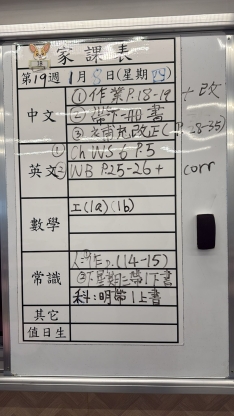 家課表
第19週 1月8日(星期四)
中文 ①作業P.18-19 + 改
②帶下一冊書
③補充改正(P.28-35)
英文 ① Ch WS 6 P.5
② WB P.25-26 + corr
數學 工(1a)(1b)
常識 作p.(14-15)
②下星期三帶1下書
科:明帶1上書
其它
值日生